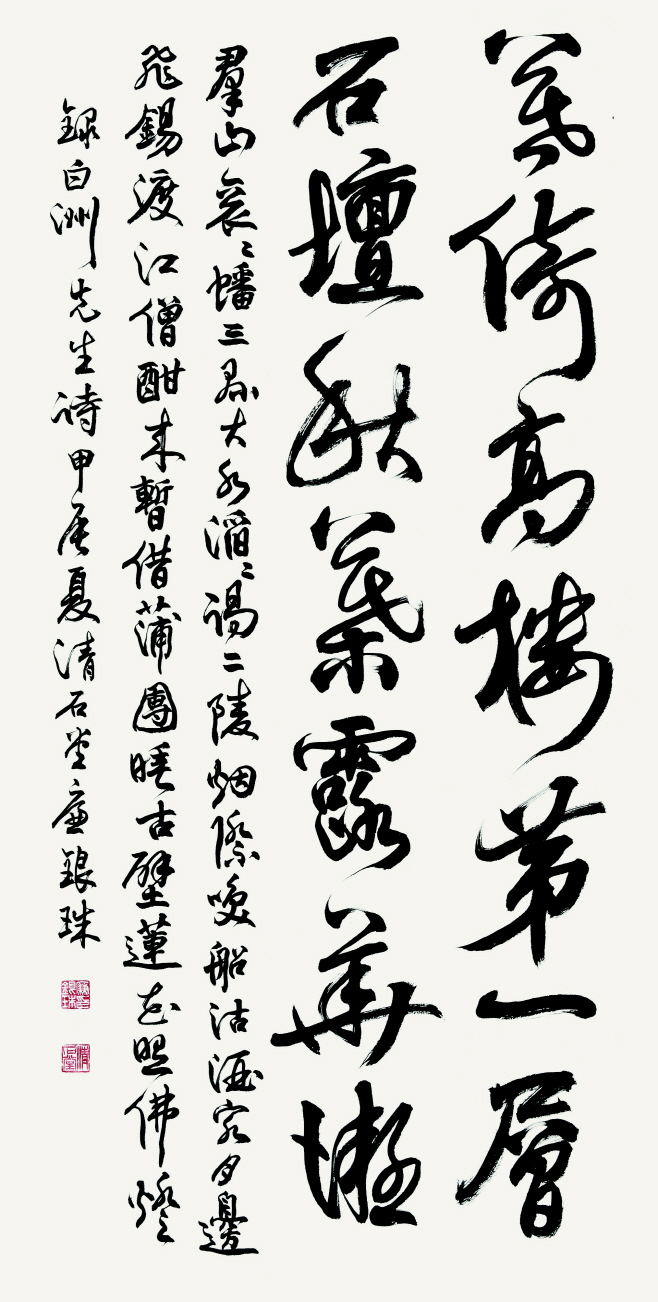 倚高樓第一層
石壇秋葉露華凝
羣山袞〻蟠三郡大水滔〻謁二陵烟際喚船沽酒客月邊
飛錫渡江僧酣來暫借蒲團睡古壁蓮花照佛燈
錄白洲先生詩甲辰夏清石堂廉銀珠